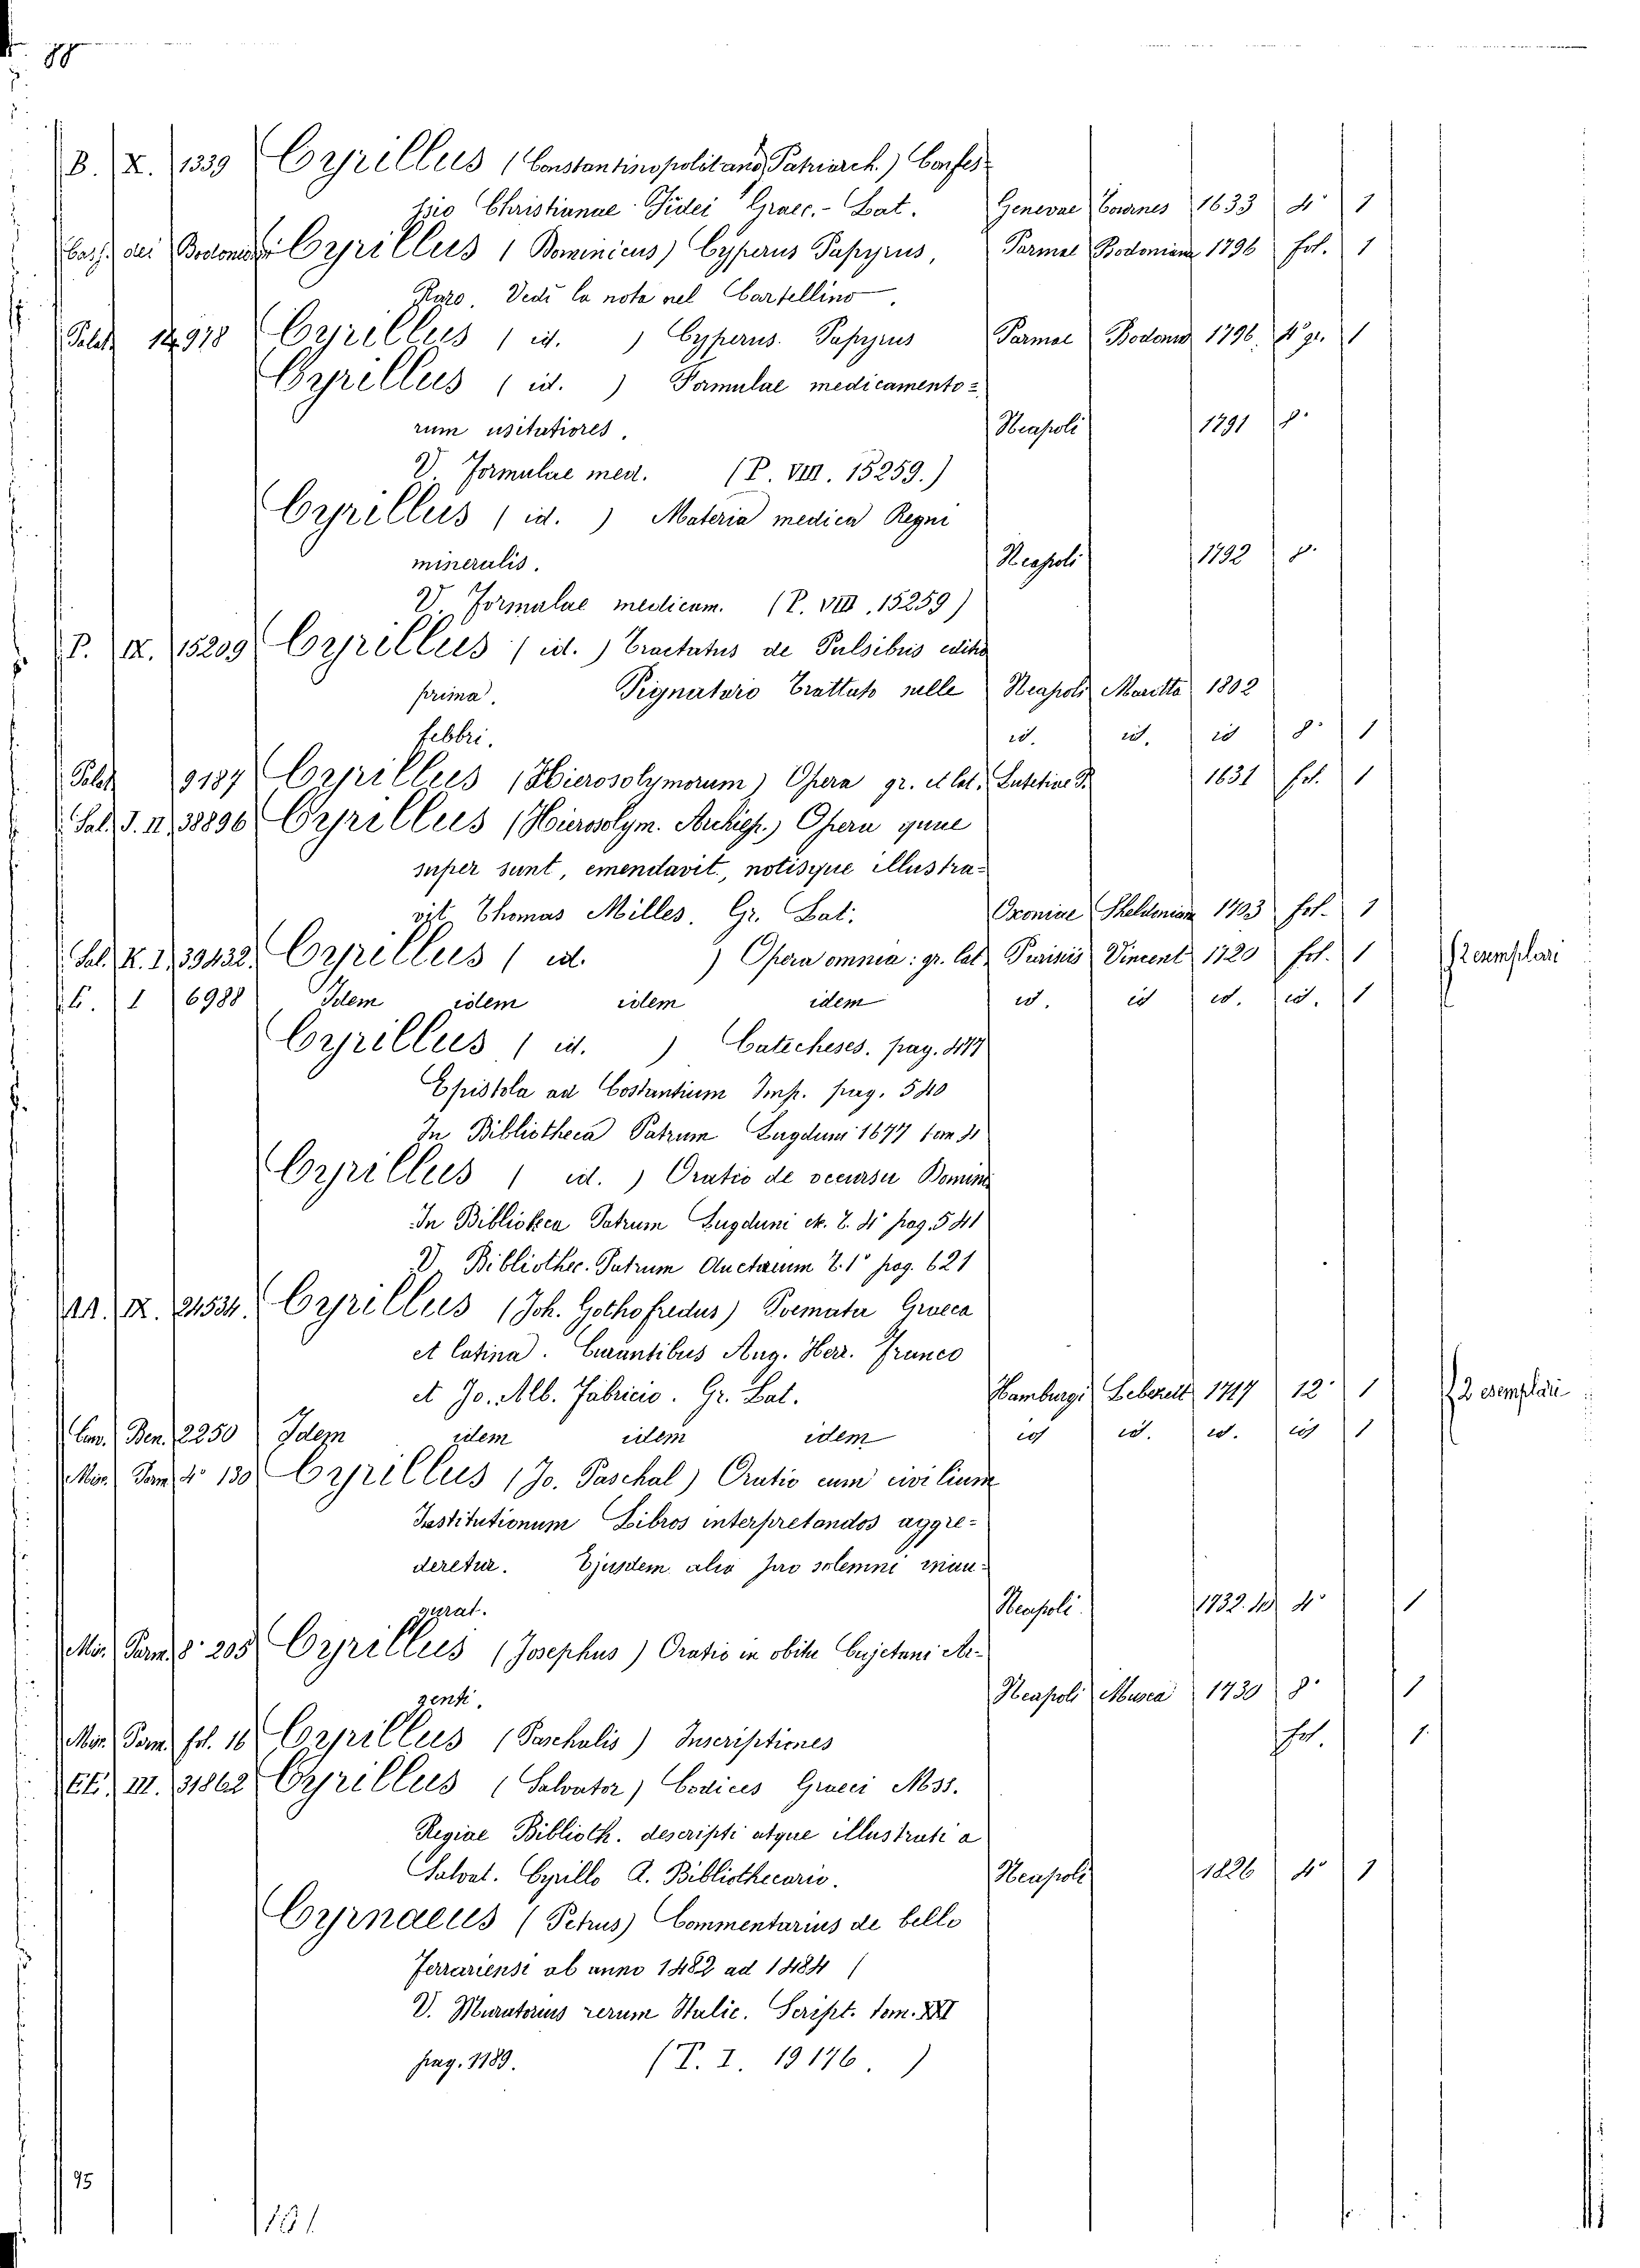 B. X. 1339 Cyrillus (Constantinopolitano Patriarch.) Confes-
sio Christianae Fidei Graec.-Lat. Genevae 1633 4° 1
Cass. dei Bodoniani Cyrillus (Dominicus) Cyperus Papyrus, Parmae Bodoniana 1796 fol. 1
Raro. Vedi la nota nel Cartellino.
Palat. 14.978 Cyrillus (id.) Cyperus Papyrus Parmae Bodoni 1796. 4° gr. 1
Cyrillus (id.) Formulae medicamento=
rum usitatiores. Neapoli 1791 8°
V. Formulae med. (P. VIII. 15259.)
Cyrillus (id.) Materia medica Regni
mineralis. Neapoli 1792 8°
V. Formulae medicam. (P. VIII. 15259)
P. IX. 15209 Cyrillus (id.) Tractatus de Pulsibus editio
prima. Pignataro Trattato sulle Neapoli Marotta 1802
febbri. id. id. id 8° 1
Palat. 9187 Cyrillus (Hierosolymorum) Opera gr. et lat. Lutetiae P. 1631 fol. 1
Sal. J. II. 38896 Cyrillus (Hierosolym. Archiep.) Opera quae
super sunt, emendavit, notisque illustra=
vit Thomas Milles. Gr. Lat. Oxoniae Sheldonian 1703 fol. 1
Sal. K. I. 39432. Cyrillus (id.) Opera omnia: gr. lat. Parisiis Vincent 1720 fol. 1 2 esemplari
1 6988 Idem idem idem idem id. id id. id. 1
Cyrillus (id.) Catecheses. pag. 447
Epistola ad Costantium Imp. pag. 540
In Bibliotheca Patrum Lugduni 1677 tom 4
Cyrillus (id.) Oratio de occursu Domini
In Bibliotheca Patrum Lugduni et. T. 4° pag. 541
V. Bibliothec. Patrum Auctarium T. 1° pag. 621
IX. 21534. Cyrillus (Joh. Gothofredus) Poemata Graeca
et latina. Curantibus Aug. Her. Franco
et Jo. Alb. Fabricio. Gr. Lat. Hamburgi Lebezelt 1717 12° 1 2 esemplari
Ben. 2250 Idem idem idem idem id id. id. id 1
Misc. Parm. 4° 130 Cyrillus (Jo. Paschal) Oratio cum civilium
Institutionum Libros interpretandos aggre=
deretur. Ejusdem alia pro solemni inau=
gurat. Neapoli 1732. 4° 1
Misc. Parm. 8° 205 Cyrillus (Josephus) Oratio in obitu Cajetani Ar=
genti. Neapoli Musca 1730 8° 1
Misc. Parm. fol. 16 Cyrillus (Paschalis) Inscriptiones fol. 1.
III. 31862 Cyrillus (Salvator) Codices Graeci Mss.
Regiae Biblioth. descripti atque illustrati a
Salvat. Cyrillo R. Bibliothecario. Neapoli 1826 4° 1
Cyrnaeus (Petrus) Commentarius de bello
Ferrariensi ab anno 1482 ad 1484 (
V. Muratorius rerum Italic. Script. tom. XXI
pag. 1189. (T. I. 19176.)
95
191